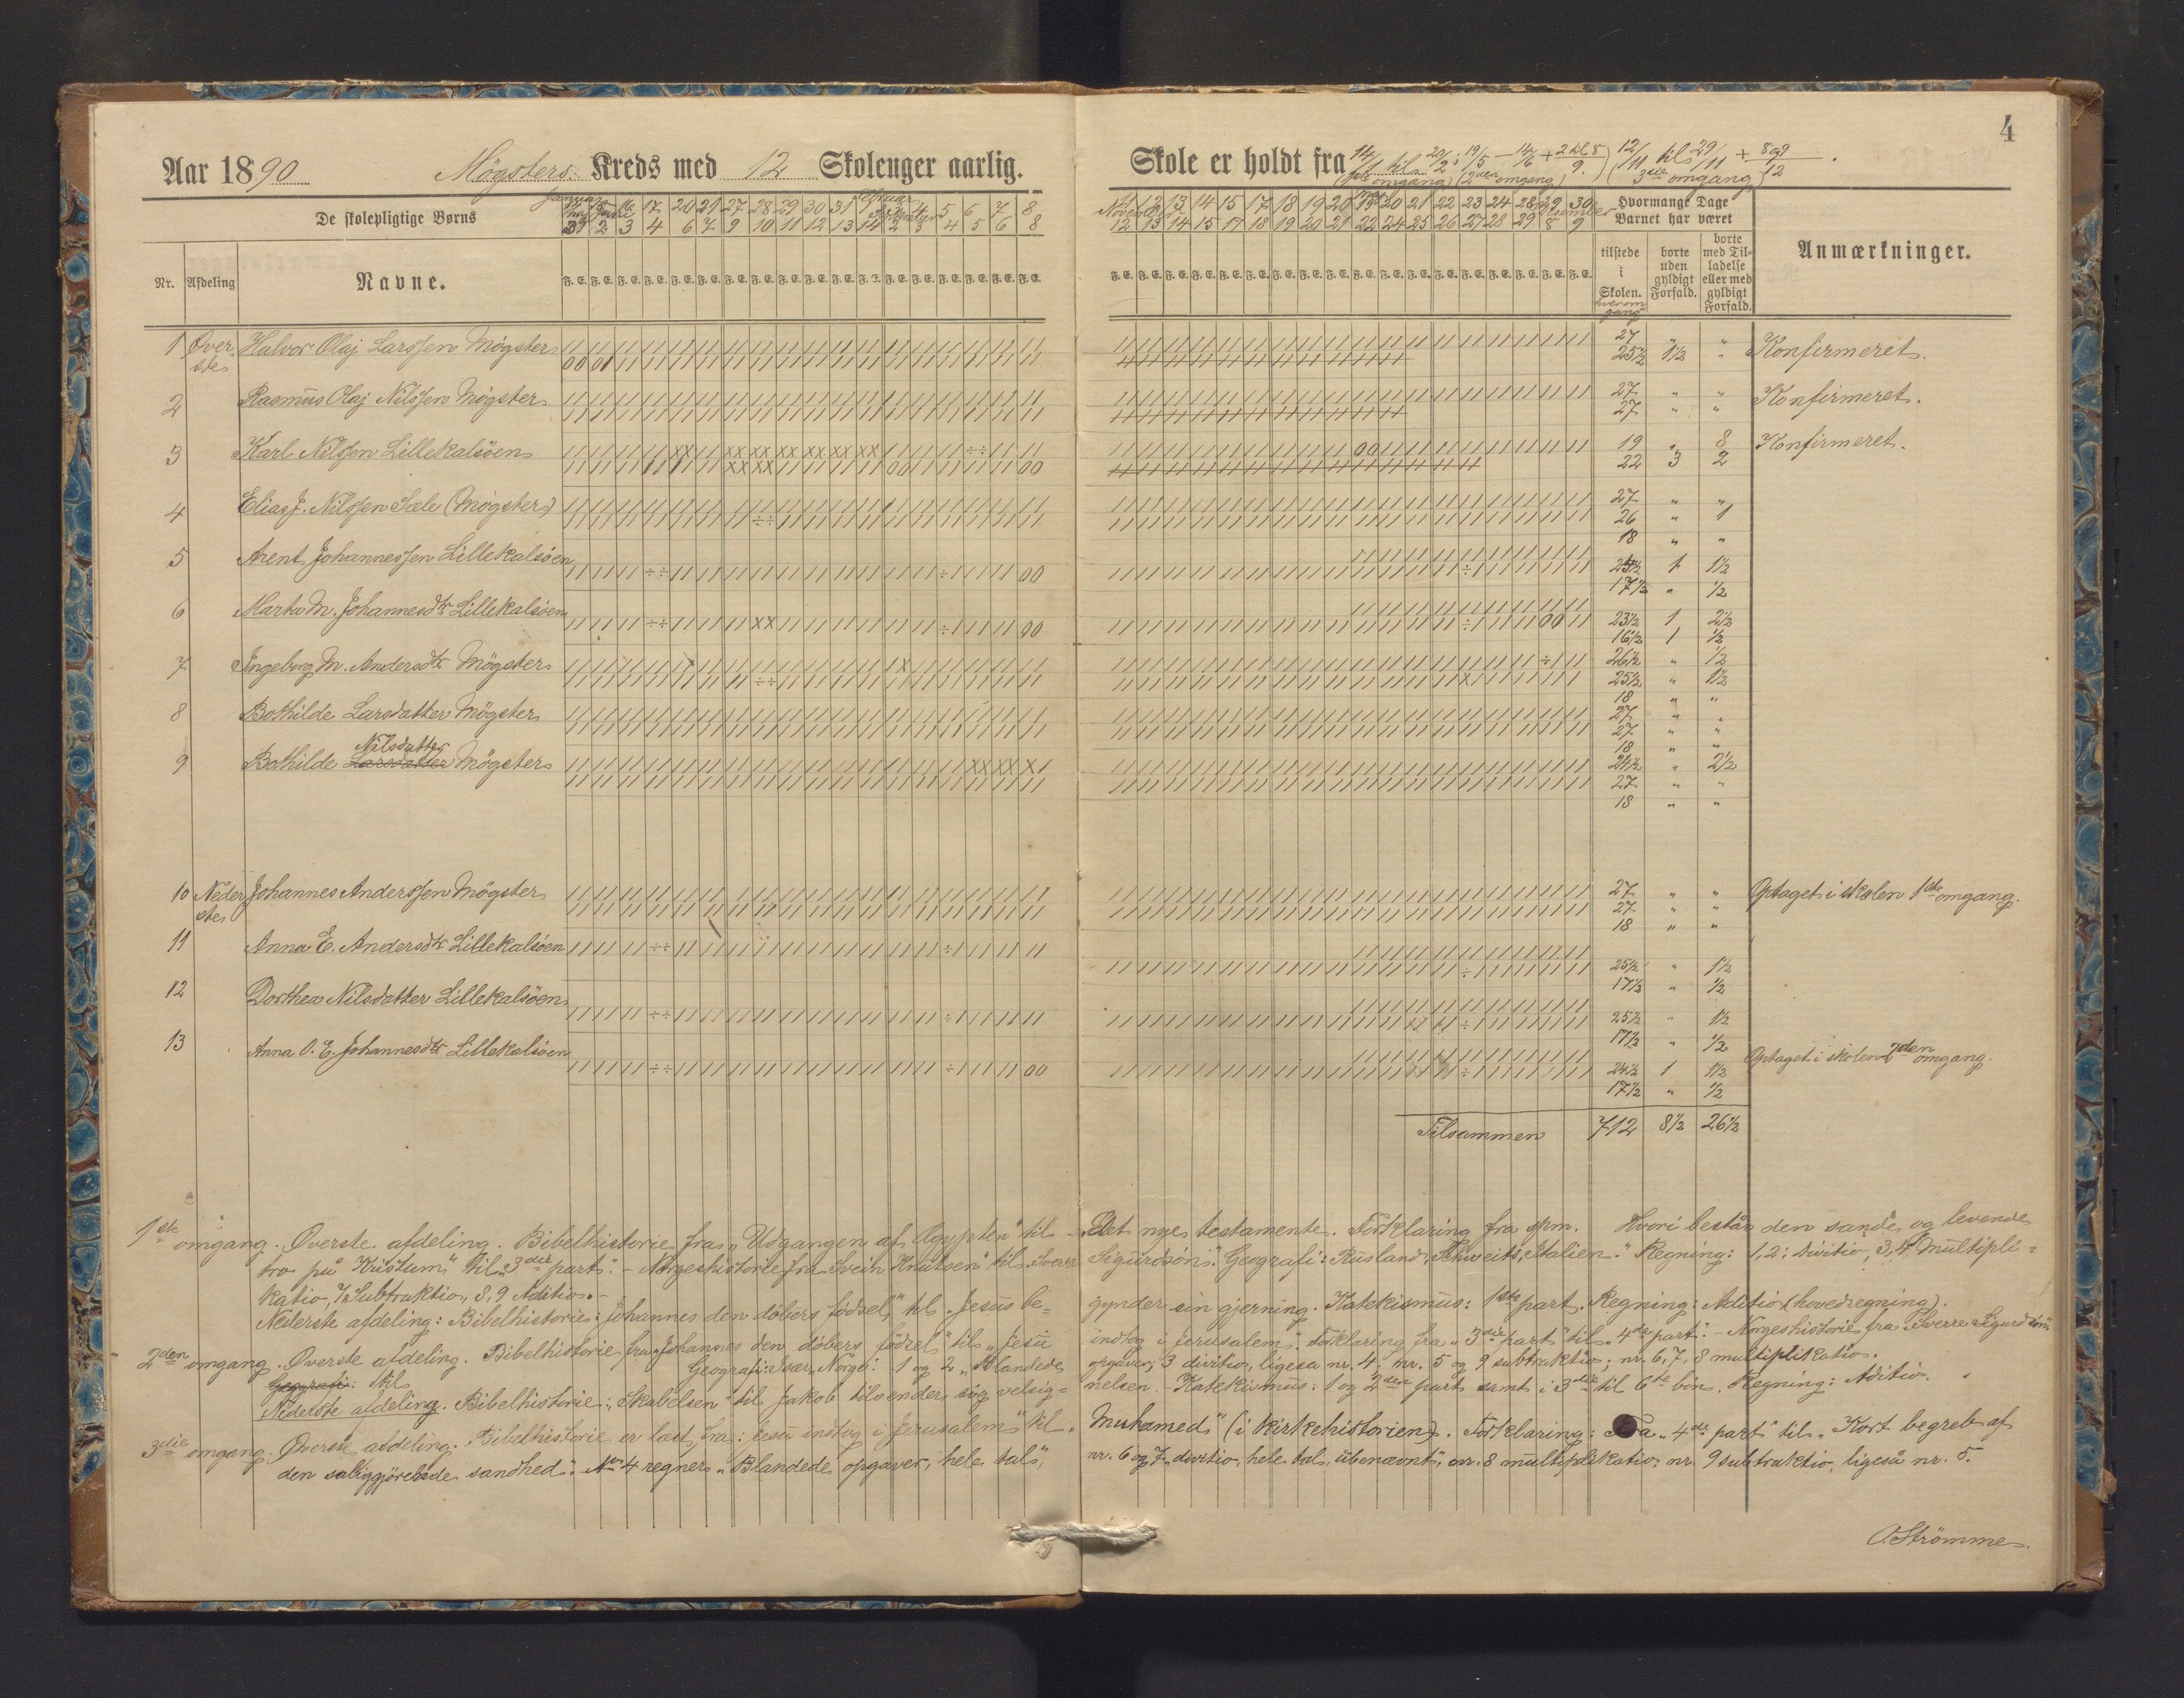 4
Aar 1890 Mögster Kreds med 12 Skolenger aarlig.
Skole er holdt fra 14/1 til 20/2; 19/5 – 14/6 + 2 til 8/9. 12/11 til 29/11 + 8 og 9/12.
(1ste omgang) (2den omgang) (3die omgang)
De skolepligtige Børns
Januar Februar
17 20 21 27 28 29 30 31 1 5 6 7 8
2 3 4 6 7 9 10 11 12 13 14 2 3 4 5 6 8
November Desember
12 13 14 15 17 18 19 20 21 22 23 24 28 29 30
12 13 14 15 17 18 19 20 21 22 24 25 26 27 28 29 8 9
Hvormange Dage Barnet har været
Nr. Afdeling Navne.
F. E. F. E. F. E. F. E. F. E. F. E. F. E. F. E. F. E. F. E. F. E. F. E. F. E. F. E. F. E. F. E. F. E. F. E.
tilstede i Skolen. hver omgang
borte uden gyldigt Forfald.
borte med Tilladelse eller med gyldigt Forfald.
Anmærkninger.
1 Øverste Halvor Olaj Larssen Mögster 27 " "
25½ 1½ " Konfirmeret.
2 Rasmus Olaj Nilssen Mögster 27 " "
27 " " Konfirmeret.
3 Karl Nilssen Lillekalsöen 19 " 8
22 3 2 Konfirmeret.
4 Elias J. Nilssen Sæle (Mögster) 27 " "
26 " 1
18 " "
5 Arent Johannessen Lillekalsöen 24½ 1 1½
17½ " ½
6 Marta M. Johannesdtr Lillekalsöen 23½ 1 2½
16½ 1 ½
7 Ingeborg M. Andersdtr Mögster 26½ " ½
25½ " 1½
18 " "
8 Bothilde Larsdatter Mögster 27 " "
27 " "
18 " "
9 Bothilde Larsdatter Nilsdatter Mögster 24½ " 2½
27 " "
18 " "
10 Nederste Johannes Anderssen Mögster 27 " " Optaget i skolen 1ste omgang.
27 " "
18 " "
11 Anna E. Andersdtr Lillekalsöen 25½ " 1½
17½ " ½
12 Dorthea Nilsdatter Lillekalsöen 25½ " 1½
17½ " ½
13 Anna O. E. Johannesdtr Lillekalsöen Optaget i skolen 2den omgang.
24½ 1 1½
17½ " ½
Tilsammen 712 8½ 26½
1ste omgang. Øverste afdeling. Bibelhistorie fra „Udgangen af Ægypten" til Det nye testamente. Forklaring fra spm. Hvori består den sande og levende
tro på Kristum" til „3die part". – Norgeshistorie fra Svein Knutsen" til Sverre Sigurdsön". Geografi: Rusland, Schweits, Italien." Regning: 1, 2: divitio, 3, 4 multipli-
katio, 7 Subtraktio, 8, 9 Aditio. –
Nederste afdeling: Bibelhistorie: Johannes den döbers födsel" til „Jesus begynder sin gjerning. Katekismus: 1ste part. Regning: Aditio (hovedregning).
2den omgang. Øverste afdeling. Bibelhistorie fra „Johannes den döbers födsel" til „Jesu indtog i Jerusalem". Forklaring fra „3die part" til „4de part". – Norgeshistorie fra Sverre Sigurdsön"
Geografi: til Geografi: Norge. 1 og 2 „Blandede opgaver; 3 divitio, ligesaa nr. 4; nr. 5 og 9 subtraktio; nr. 6, 7, 8 multiplikatio.
Nederste afdeling. Bibelhistorie: „Skabelsen" til Jakob tilvender sig velsignelsen. – Katekismus: 1 og 2den part samt i 3die til 6te bön. Regning: Aditio.
3die omgang. Øverste afdeling. Bibelhistorie er læst fra: Jesu indtog i Jerusalem" til „Muhamed" (i kirkehistorien). Forklaring: Fra „4de part" til „Kort begreb af
den saliggjörende sandhed". 4 regner „Blandede opgaver, hele tal", nr. 6 og 7 „divitio, hele tal, ubenævnt"; nr. 8 multiplikatio; nr. 9 subtraktio, ligeså nr. 5.
O. Strömme.